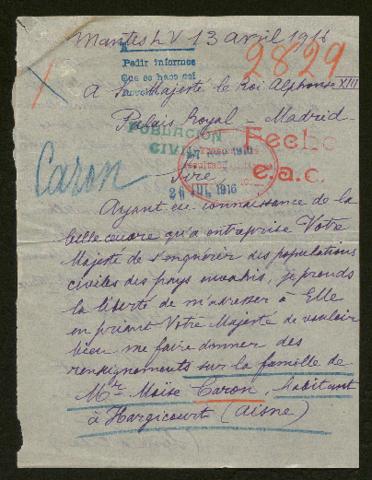 Mantes s/ V 13 avril 1916
A
Pedir informes
Que se hace asi
2829
A Sa Majesté le Roi Alphonse XIII
Palais Royal - Madrid
POBLACION
CIVIL
Fecho
e.a.c.
Caron
Sire
20 JUL. 1916
Ayant eu connaissance de la
belle œuvre qu'a entreprise Votre
Majesté de s'enquérir des populations
civiles des pays envahis, je prends
la liberté de m'adresser à Elle
en priant Votre Majesté de vouloir
bien me faire donner des
renseignements sur la famille de
Mr Moïse Caron, habitant
à Hargicourt (Aisne)